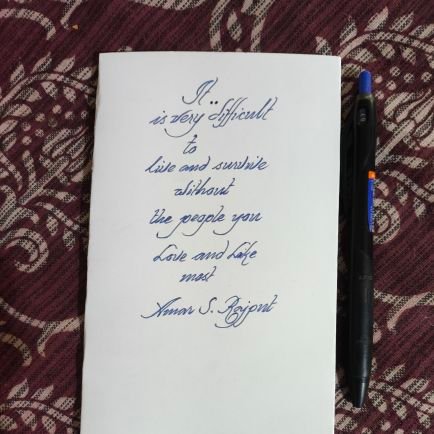 It
is very difficult
to
live and survive
without
the people you
Love and Like
most
Amar S. Rajput